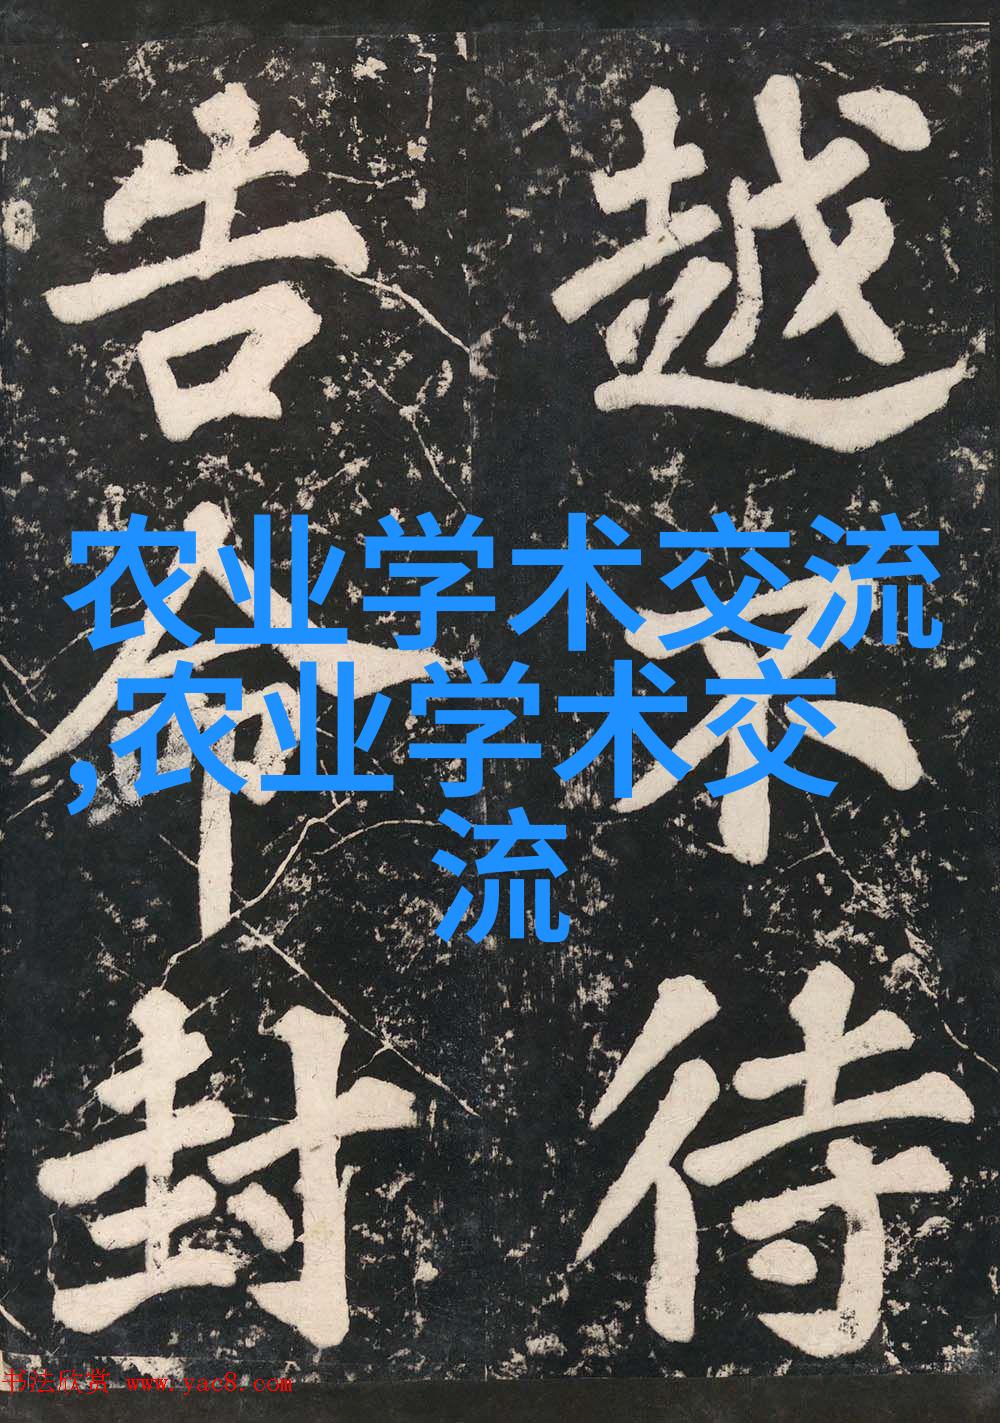 越不待
告命封
农业学术交流
,农业学术交
流
书法欣赏 www.yac8.com